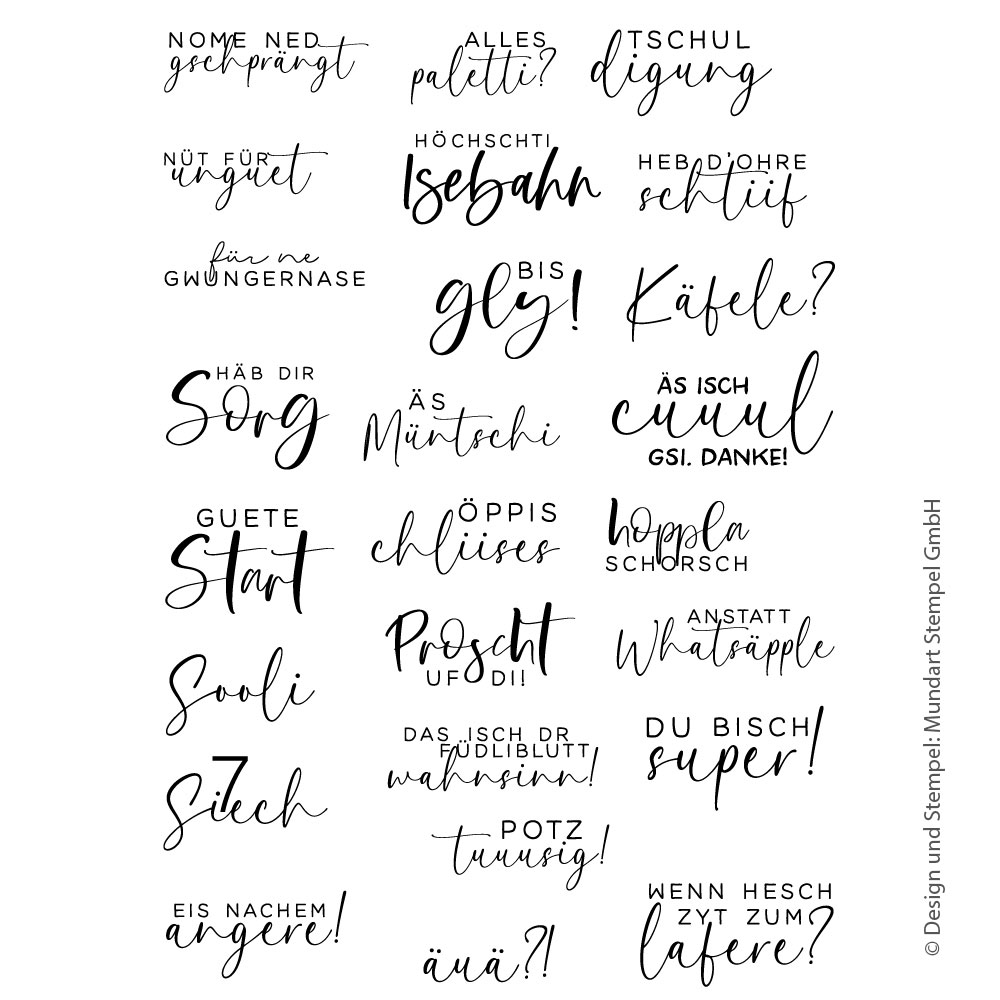 NOME NED
gschprängt
ALLES
paletti?
TSCHUL
digung
NÜT FÜR
unguet
HÖCHSCHTI
Isebahn
HEB D'OHRE
schtiif
für ne
GWUNGERNASE
BIS
gly!
Käfele?
HÄB DIR
Sorg
ÄS
Müntschi
ÄS ISCH
cuuul
GSI. DANKE!
GUETE
Start
ÖPPIS
chliises
hoppla
SCHORSCH
Sooli
PROSCHT
UF DI!
ANSTATT
Whatsäpple
7
Siech
DAS ISCH DR
FÜDLIBLUTT
wahnsinn!
DU BISCH
super!
POTZ
tuuusig!
EIS NACHEM
angere!
äuä?!
WENN HESCH
ZYT ZUM
lafere?
© Design und Stempel: Mundart Stempel GmbH